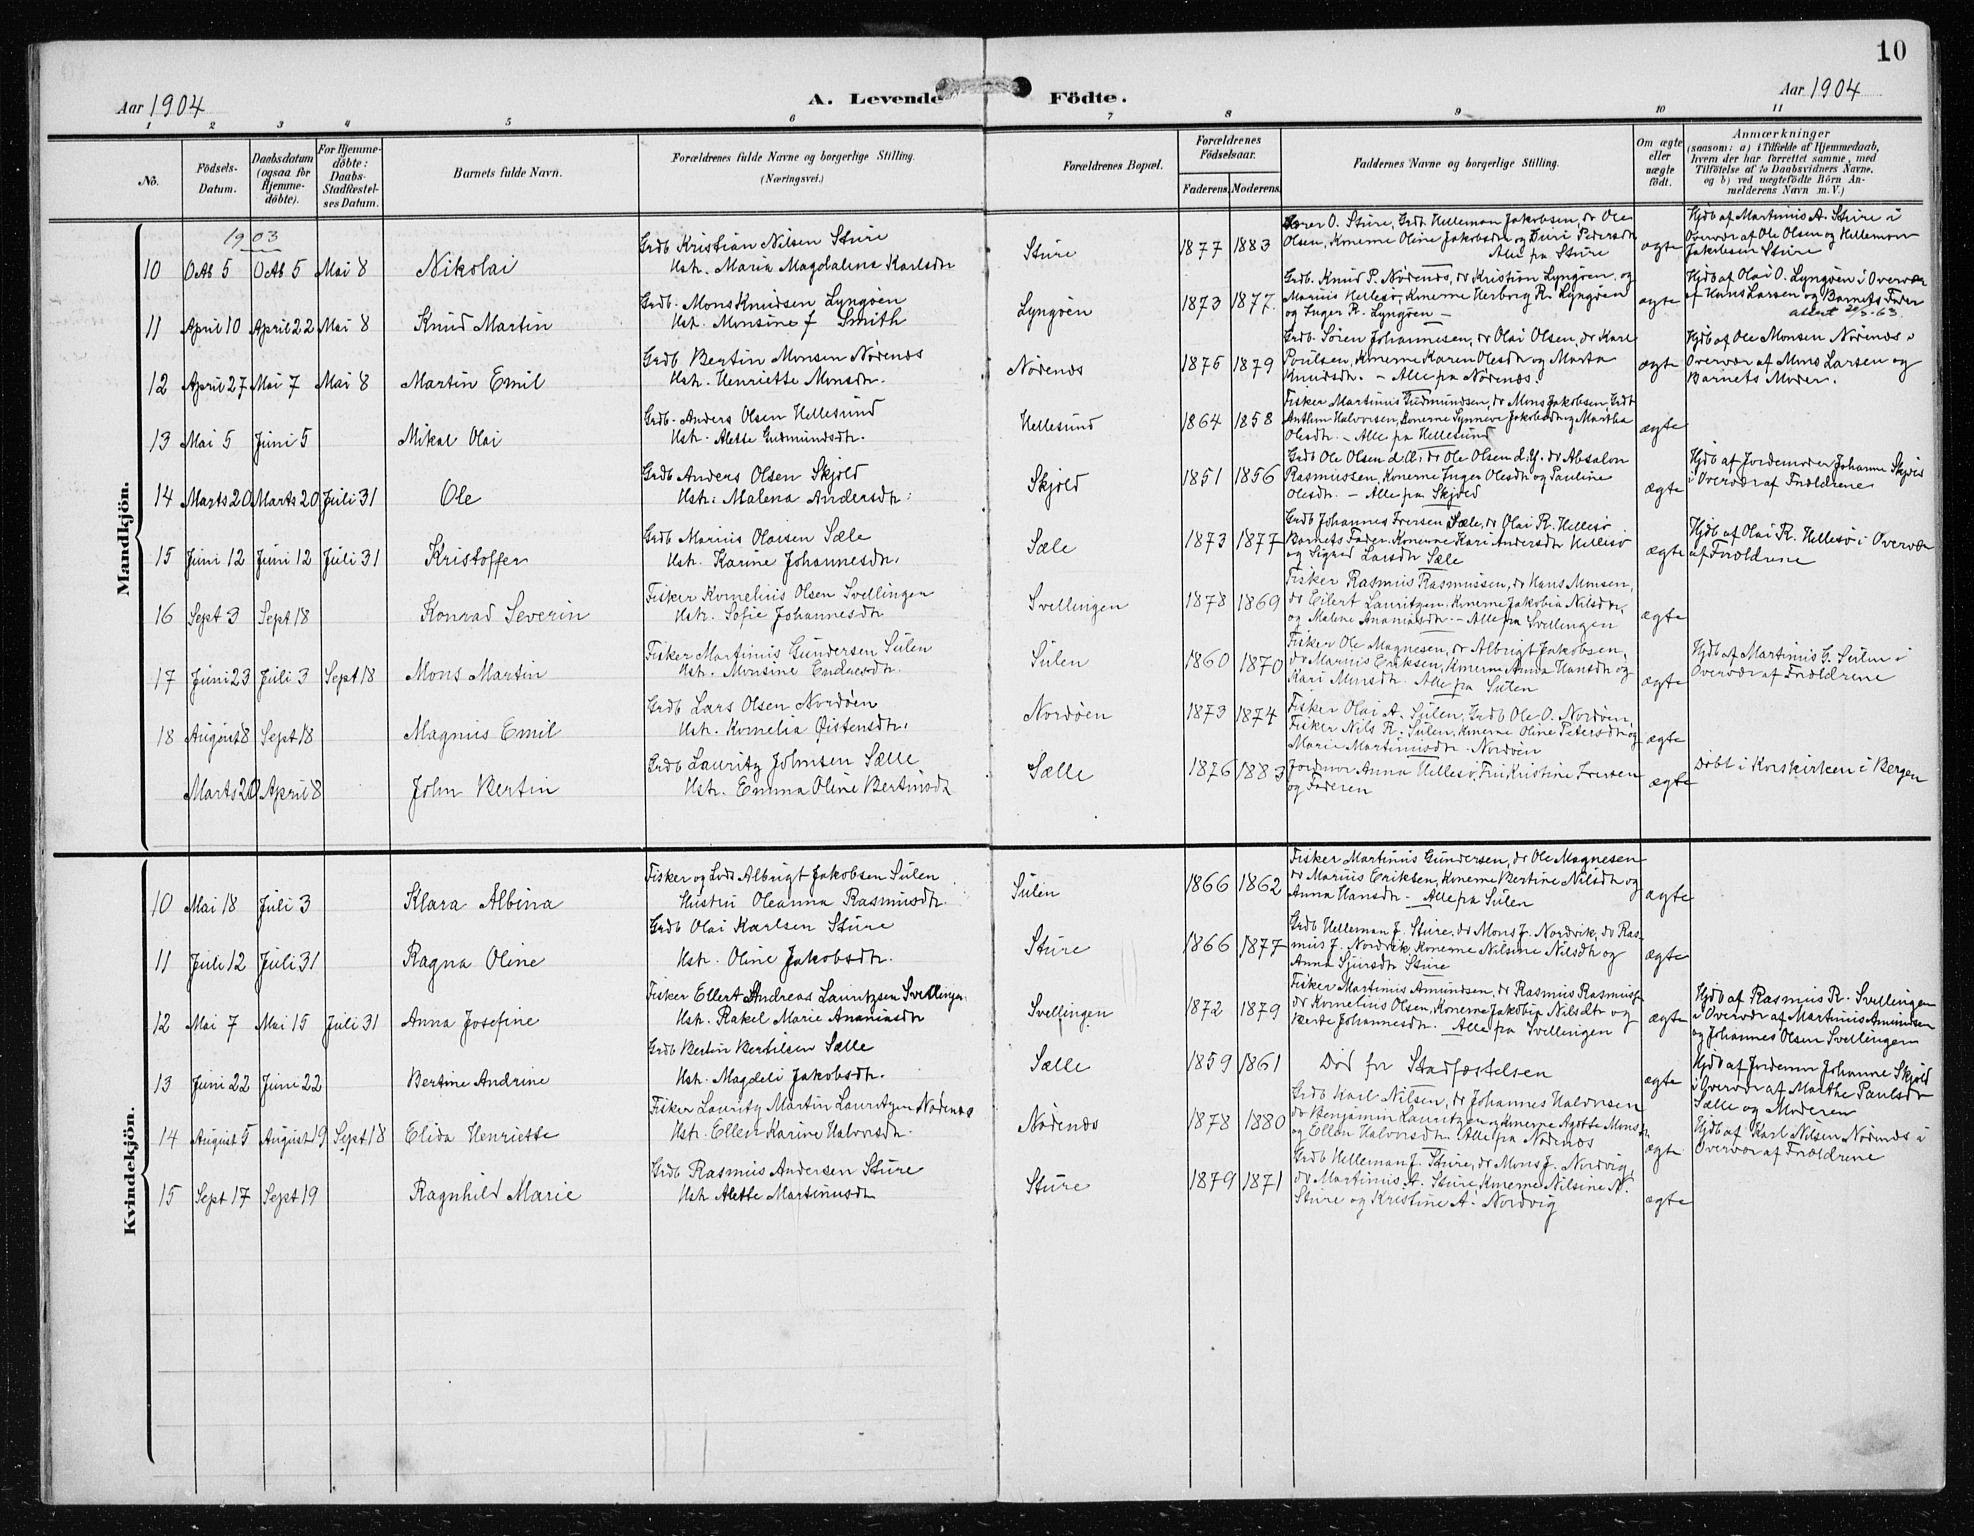 10
Aar 1904
A. Levende Födte.
Aar 1904
1 2 3 4 5 6 7 8 9 10 11
No.
Födsels-Datum.
Daabsdatum (ogsaa for Hjemme-döbte).
For Hjemme-döbte: Daabs-Stadfæstel-ses Datum.
Barnets fulde Navn.
Forældrenes fulde Navne og borgerlige Stilling.
(Næringsvei.)
Forældrenes Bopæl.
Forældrenes Födselsaar.
Faderens. Moderens.
Faddernes Navne og borgerlige Stilling.
Om ægte eller uægte födt.
Anmærkninger
(saasom: a) i Tilfælde af Hjemmedaab, hvem der har forrettet samme, med Tilföielse af to Daabsvidners Navne, og b) ved uægtefödte Börn An-melderens Navn m. V.)
Mandkjön.
1903
10 Okt 5 Okt 5 Mai 8 Nikolai
Grdb Kristian Nilsen Sture
Hstr. Maria Magdalena Karlsdtr
Sture 1877 1883
Olsen, Konerne Oline Jakobsdtr og Duri Pedersdtr
Alle fra Sture
ægte
Hjdb af Martinus A. Sture i
Overvær af Ole Olsen og Helleman
Jakobsen Sture
11 April 10 April 22 Mai 8 Knud Martin
Grdb. Mons Knudsen Lyngøen
Hstr. Monsine J Smith
Lyngøen 1873 1877
Grdb. Knud P. Nødenæs, do Kristian Lyngøen og
Marius Hellesø, Konerne Herborg R. Lyngøen
og Inger R. Lyngøen —
ægte
Hjdb af Olai O. Lyngøen i Overvær
af Hans Larsen og Barnets Fader
12 April 27 Mai 7 Mai 8 Martin Emil
Grdb Bertin Monsen Nødenæs
Hstr. Henriette Monsdtr.
Nødenæs 1875 1879
Grdb. Søren Johannesen, do Olai Olsen, do Karl
Poulsen, Konerne Karen Olesdtr og Marta
Knudsdtr. — Alle fra Nødenæs.
ægte
Hjdb af Ole Monsen Nødenæs i
Overvær af Mons Larsen og
Barnets Moder.
13 Mai 5 Juni 5 Mikal Olai
Grdb. Anders Olsen Hellesund
Hstr. Alette Gudmundsdtr.
Hellesund 1864 1858
Fisker Martinus Gudmundsen, do Mons Jakobsen, Grdb
Anthun Halvorsen, Konerne Synneve Jakobsdtr og Martha
Olesdtr. — Alle fra Hellesund
ægte
14 Marts 20 Marts 20 Juli 31 Ole
Grdb Anders Olsen Skjold
Hstr. Malena Andersdtr.
Skjold 1851 1856
Grdb Ole Olsen d.æ. do Ole Olsen d.y. do Absalon
Rasmussen, Konerne Inger Olesdtr og Pauline
Olesdtr. — Alle fra Skjold
ægte
Hjdb af Jordemoder Johanne Skjold
i Overvær af Forældrene
15 Juni 12 Juni 12 Juli 31 Kristoffer
Grdb Marius Olaisen Sæle
Hstr. Karine Johannesdtr.
Sæle 1873 1877
Grdb Johannes Iversen Sæle, do Olai R. Hellesø
Barnets Fader, Konerne Kari Andersdtr Hellesø
og Sigrid Larsdtr Sæle
ægte
Hjdb af Olai R. Hellesø i Overvær
af Forældrene
16 Sept 3 Sept 18 Konrad Severin
Fisker Kornelius Olsen Svellingen
Hstr. Sofie Johannesdtr
Svellingen 1878 1869
Fisker Rasmus Rasmussen, do Hans Monsen,
do Eilert Lauritzen, Konerne Jakobia Nilsdtr,
og Malene Ananiasdtr. — Alle fra Svellingen
ægte
17 Juni 23 Juli 3 Sept 18 Mons Martin
Fisker Martinus Gundersen Sulen
Hstr. Monsine Endresdtr.
Sulen 1860 1870
Fisker Ole Magnesen, do Albrigt Jakobsen,
do Marius Eriksen, Konerne Anna Hansdtr og
Kari Monsdtr. Alle fra Sulen
ægte
Hjdb af Martinus G. Sulen i
Overvær af Forældrene
18 August 8 Sept 18 Magnus Emil
Grdb Lars Olsen Nordøen
Hstr. Kornelia Øistensdtr.
Nordøen 1873 1874
Fisker Olai A. Sulen, Grdb Ole O. Nordøen,
Fisker Nils R. Sulen, Konerne Oline Petersdtr og
Marie Martinusdtr. Nordøen
ægte
Marts 20 April 8 John Bertin
Grdb Lauritz Johnsen Sælle
Hstr. Emma Oline Bertinsdtr
Sælle 1876 1883
Jordmor Anna Hellesø, Frk Kristine Iversen
og Faderen
ægte
Døbt i Korskirken i Bergen
Kvindekjön.
10 Mai 18 Juli 3 Klara Albina
Fisker og Lods Albrigt Jakobsen Sulen
Hustru Oleanna Rasmusdtr.
Sulen 1866 1862
Fisker Martinus Gundersen, do Ole Magnesen
do Marius Eriksen, Konerne Bertine Nilsdtr og
Anna Hansdtr — Alle fra Sulen
ægte
11 Juli 12 Juli 31 Ragna Oline
Grdb Olai Karlsen Sture
Hstr. Oline Jakobsdtr.
Sture 1866 1877
Grdb Helleman J. Sture, do Mons J. Nordvik, do Ras-
mus J. Nordvik, Konerne Nilsine Nilsdtr og
Anna Sjursdtr Sture
ægte
12 Mai 7 Mai 15 Juli 31 Anna Josefine
Fisker Ellert Andreas Lauritzsen Svellingen
Hstr. Rakel Marie Ananiasdtr
Svellingen 1872 1879
Fisker Martinus Amundsen, do Rasmus Rasmuss.
do Kornelius Olsen, Konerne Jakobia Nilsdtr og
Berte Johannesdtr. — Alle fra Svellingen
ægte
Hjdb af Rasmus R. Svellingen
i Overvær af Martinus Amundsen
og Johannes Olsen Svellingen
13 Juni 22 Juni 22 Bertine Andrine
Grdb Bertin Bertelsen Sælle
Hstr. Magdeli Jakobsdtr.
Sælle 1859 1861
Død før Stadfæstelsen
ægte
Hjdb af Jordemor Johanne Skjold
i Overvær af Marthe Paulsdtr
Sælle og Moderen
14 August 5 August 9 Sept 18 Elida Henriette
Fisker Lauritz Martin Lauritzen Nødenæs
Hstr. Ellen Karine Halvorsdtr.
Nødenæs 1878 1880
Grdb Karl Nilsen, do Johannes Halvorsen
do Benjamin Lauritzen og Konerne Agathe Monsdtr
og Ellen Halvorsdtr. Alle fra Nødenæs
ægte
Hjdb af Karl Nilsen Nødenæs i
Overvær af Forældrene
15 Sept 17 Sept 19 Ragnhild Marie
Grdb Rasmus Andersen Sture
Hstr Alette Martinusdtr
Sture 1879 1871
Grdb Helleman J. Sture, do Mons J. Nordvig,
do Martinus A. Sture, Konerne Nilsine N.
Sture og Kristine A. Nordvig
ægte